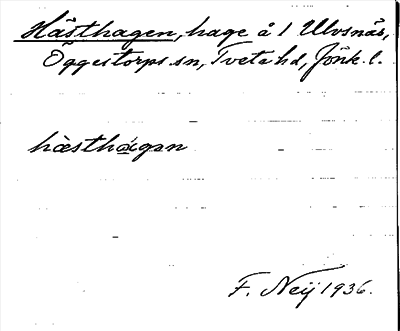 Hästhagen, hage å 1 Ulvsnäs,
Öggestorps sn, Tveta hd, Jönk. l.
hæsthágən
F. Neij 1936.